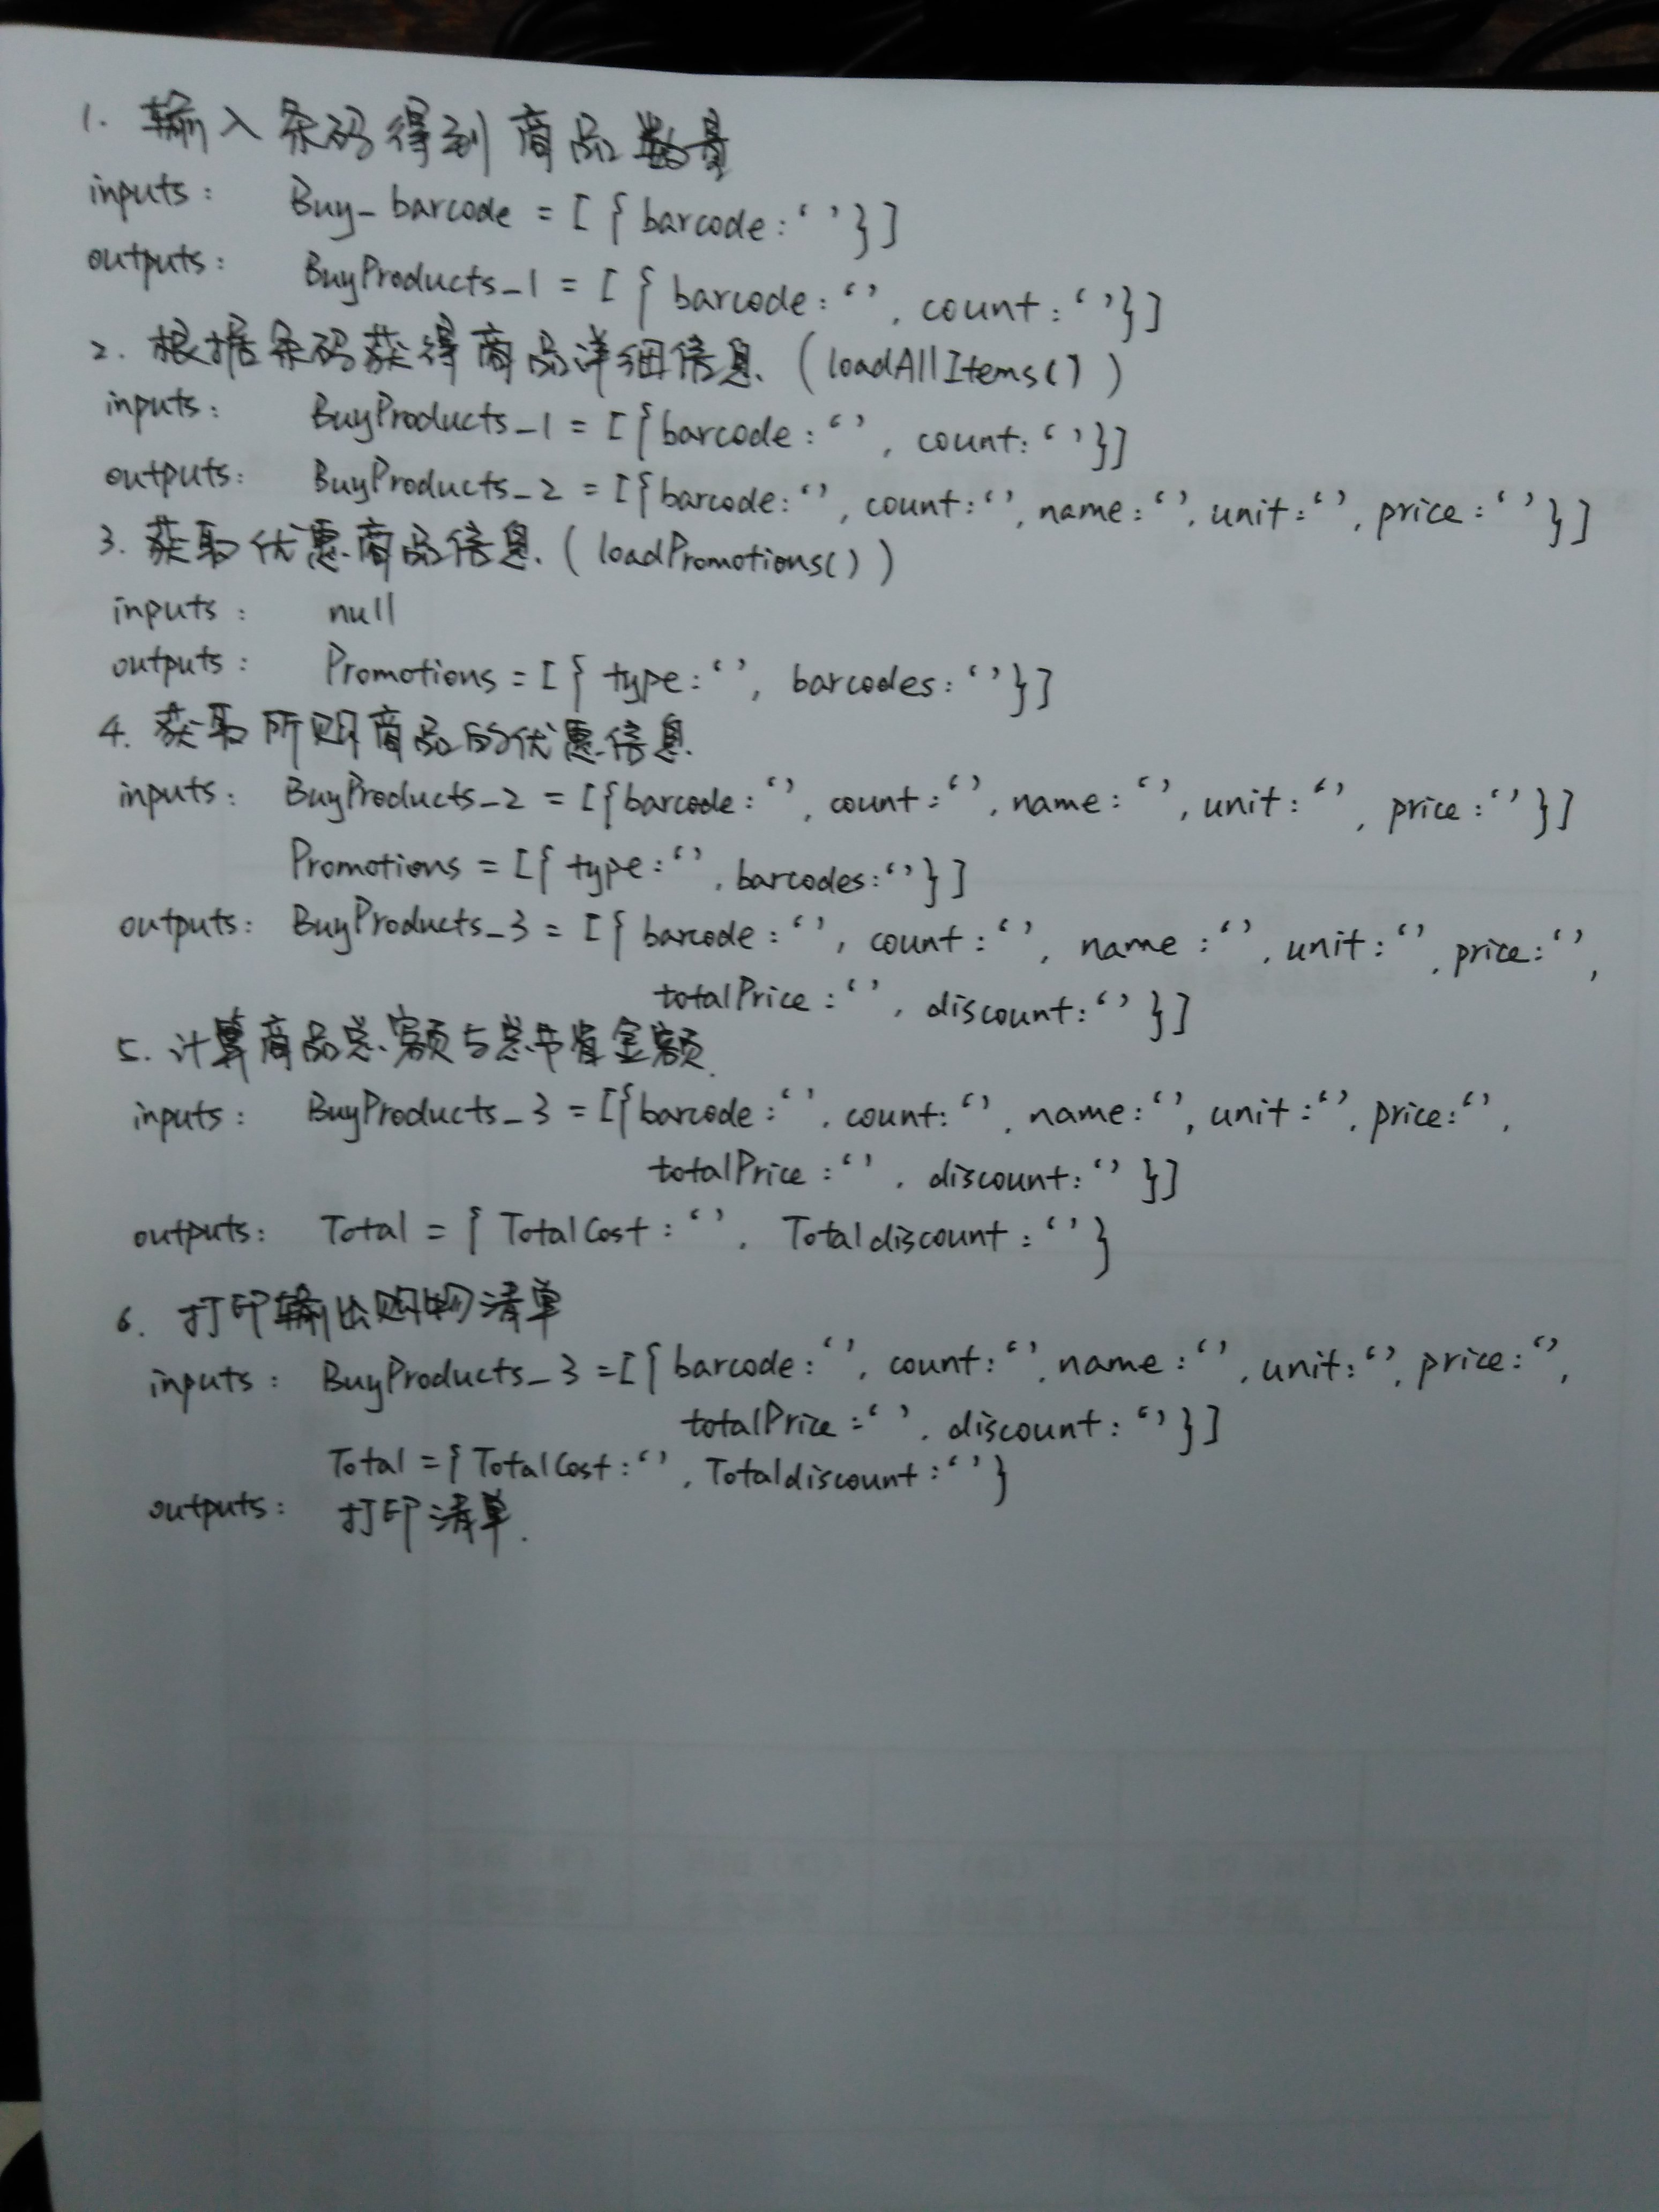 1. 输入条码得到商品数量
inputs: Buy_barcode = [{barcode:‘’}]
outputs: BuyProducts_1 = [{barcode:‘’, count:‘’}]
2. 根据条码获得商品详细信息. (loadAllItems())
inputs: BuyProducts_1 = [{barcode:‘’, count:‘’}]
outputs: BuyProducts_2 = [{barcode:‘’, count:‘’, name:‘’, unit:‘’, price:‘’}]
3. 获取优惠商品信息. (loadPromotions())
inputs: null
outputs: Promotions = [{type:‘’, barcodes:‘’}]
4. 获取所购商品的优惠信息.
inputs: BuyProducts_2 = [{barcode:‘’, count:‘’, name:‘’, unit:‘’, price:‘’}]
Promotions = [{type:‘’, barcodes:‘’}]
outputs: BuyProducts_3 = [{barcode:‘’, count:‘’, name:‘’, unit:‘’, price:‘’,
totalPrice:‘’, discount:‘’}]
5. 计算商品总额与总节省金额.
inputs: BuyProducts_3 = [{barcode:‘’, count:‘’, name:‘’, unit:‘’, price:‘’,
totalPrice:‘’, discount:‘’}]
outputs: Total = {TotalCost:‘’, Totaldiscount:‘’}
6. 打印输出购物清单
inputs: BuyProducts_3 = [{barcode:‘’, count:‘’, name:‘’, unit:‘’, price:‘’,
totalPrice:‘’, discount:‘’}]
Total = {TotalCost:‘’, Totaldiscount:‘’}
outputs: 打印清单.